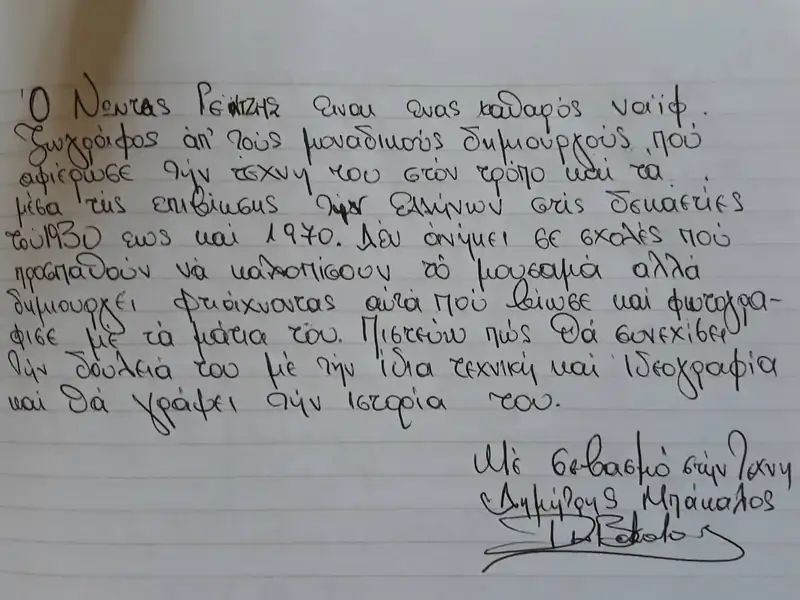 Ὁ Νώντας Ρέντζης ειναι ενας καθαρός ναΐφ.
Ζωγράφος ἀπ' τοὺς μοναδικοὺς δημιουργοὺς, ποὺ
αφιέρωσε τὴν τέχνη του στὸν τρόπο καὶ τα
μέσα τῆς επιβίωσης τῶν Ελλήνων στὶς δεκαετίες
τοῦ 1930 εως και 1970. Δὲν ἀνήκει σε σχολὲς ποὺ
προσπαθοῦν νὰ καλοπίσουν τὸ μουσαμά αλλά
δημιουργεί φτιάχνοντας αὐτὰ ποὺ βίωσε καὶ φωτογρα-
φισε μὲ τὰ μάτια τοῦ. Πιστευω πὼς θὰ συνεχίσει
τὴν δουλειά του μὲ τὴν ἴδια τεχνική καὶ ἰδεογραφία
καὶ θὰ γράψει τὴν ιστορία του.
Μὲ σεβασμό στὴν Τεχνη
Δημήτρης Μπάκαλος